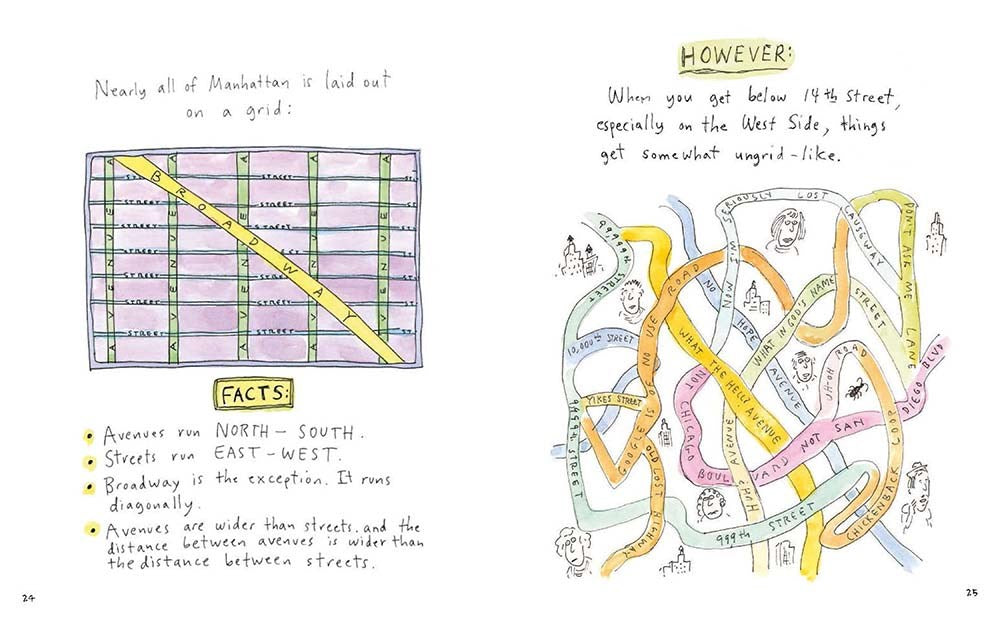 Nearly all of Manhattan is laid out
on a grid:
BROADWAY
AVENUE
AVENUE
AVENUE
AVENUE
AVENUE
STREET
STREET
STREET
STREET
STREET
STREET
STREET
STREET
STREET
STREET
STREET
FACTS:
• Avenues run NORTH – SOUTH.
• Streets run EAST – WEST.
• Broadway is the exception. It runs
diagonally.
• Avenues are wider than streets. and the
distance between avenues is wider than
the distance between streets.
24
HOWEVER:
When you get below 14th Street,
especially on the West Side, things
get somewhat ungrid-like.
99,999th STREET
NOW I'M SERIOUSLY LOST CAUSEWAY
DON'T ASK ME LANE
GOOGLE IS OF NO USE ROAD
NO HOPE AVENUE
WHAT IN GOD'S NAME STREET
WHAT THE HELL? AVENUE
10,000th STREET
YIKES STREET
UH-OH ROAD
NOT CHICAGO BOULEVARD NOT SAN DIEGO BLVD
9999th STREET
OLD LOST HIGHWAY
HUH? AVENUE
999th STREET
CHICKENBACK COOP
25